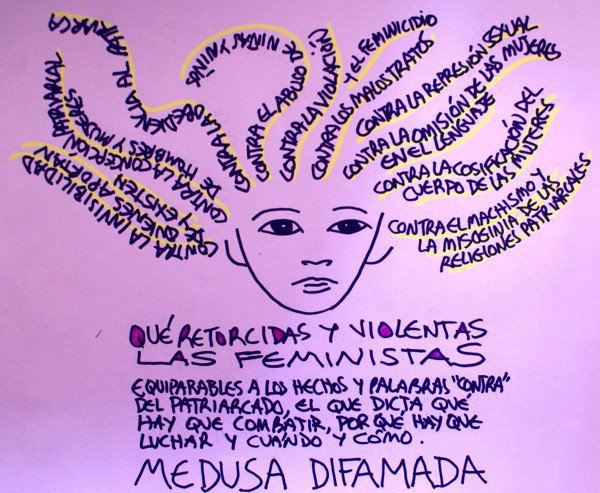 CONTRA LA INVISIBILIDAD
DE QUIENES APORTAN
Y EXISTEN
CONTRA LA CONCEPCIÓN PATRIARCAL
DE HOMBRES Y MUJERES
CONTRA LA OBEDIENCIA AL PATRIARCA
CONTRA EL ABUSO DE NIÑAS Y NIÑOS
CONTRA LA VIOLACIÓN
CONTRA LOS MALOSTRATOS
Y EL FEMINICIDIO
CONTRA LA REPRESIÓN SEXUAL
CONTRA LA OMISIÓN DE LAS MUJERES
EN EL LENGUAJE
CONTRA LA COSIFICACIÓN DEL
CUERPO DE LAS MUJERES
CONTRA EL MACHISMO Y
LA MISOGINIA DE LAS
RELIGIONES PATRIARCALES
QUÉ RETORCIDAS Y VIOLENTAS
LAS FEMINISTAS
EQUIPARABLES A LOS HECHOS Y PALABRAS "CONTRA"
DEL PATRIARCADO, EL QUE DICTA QUÉ
HAY QUE COMBATIR, POR QUÉ HAY QUE
LUCHAR Y CUÁNDO Y CÓMO.
MEDUSA DIFAMADA